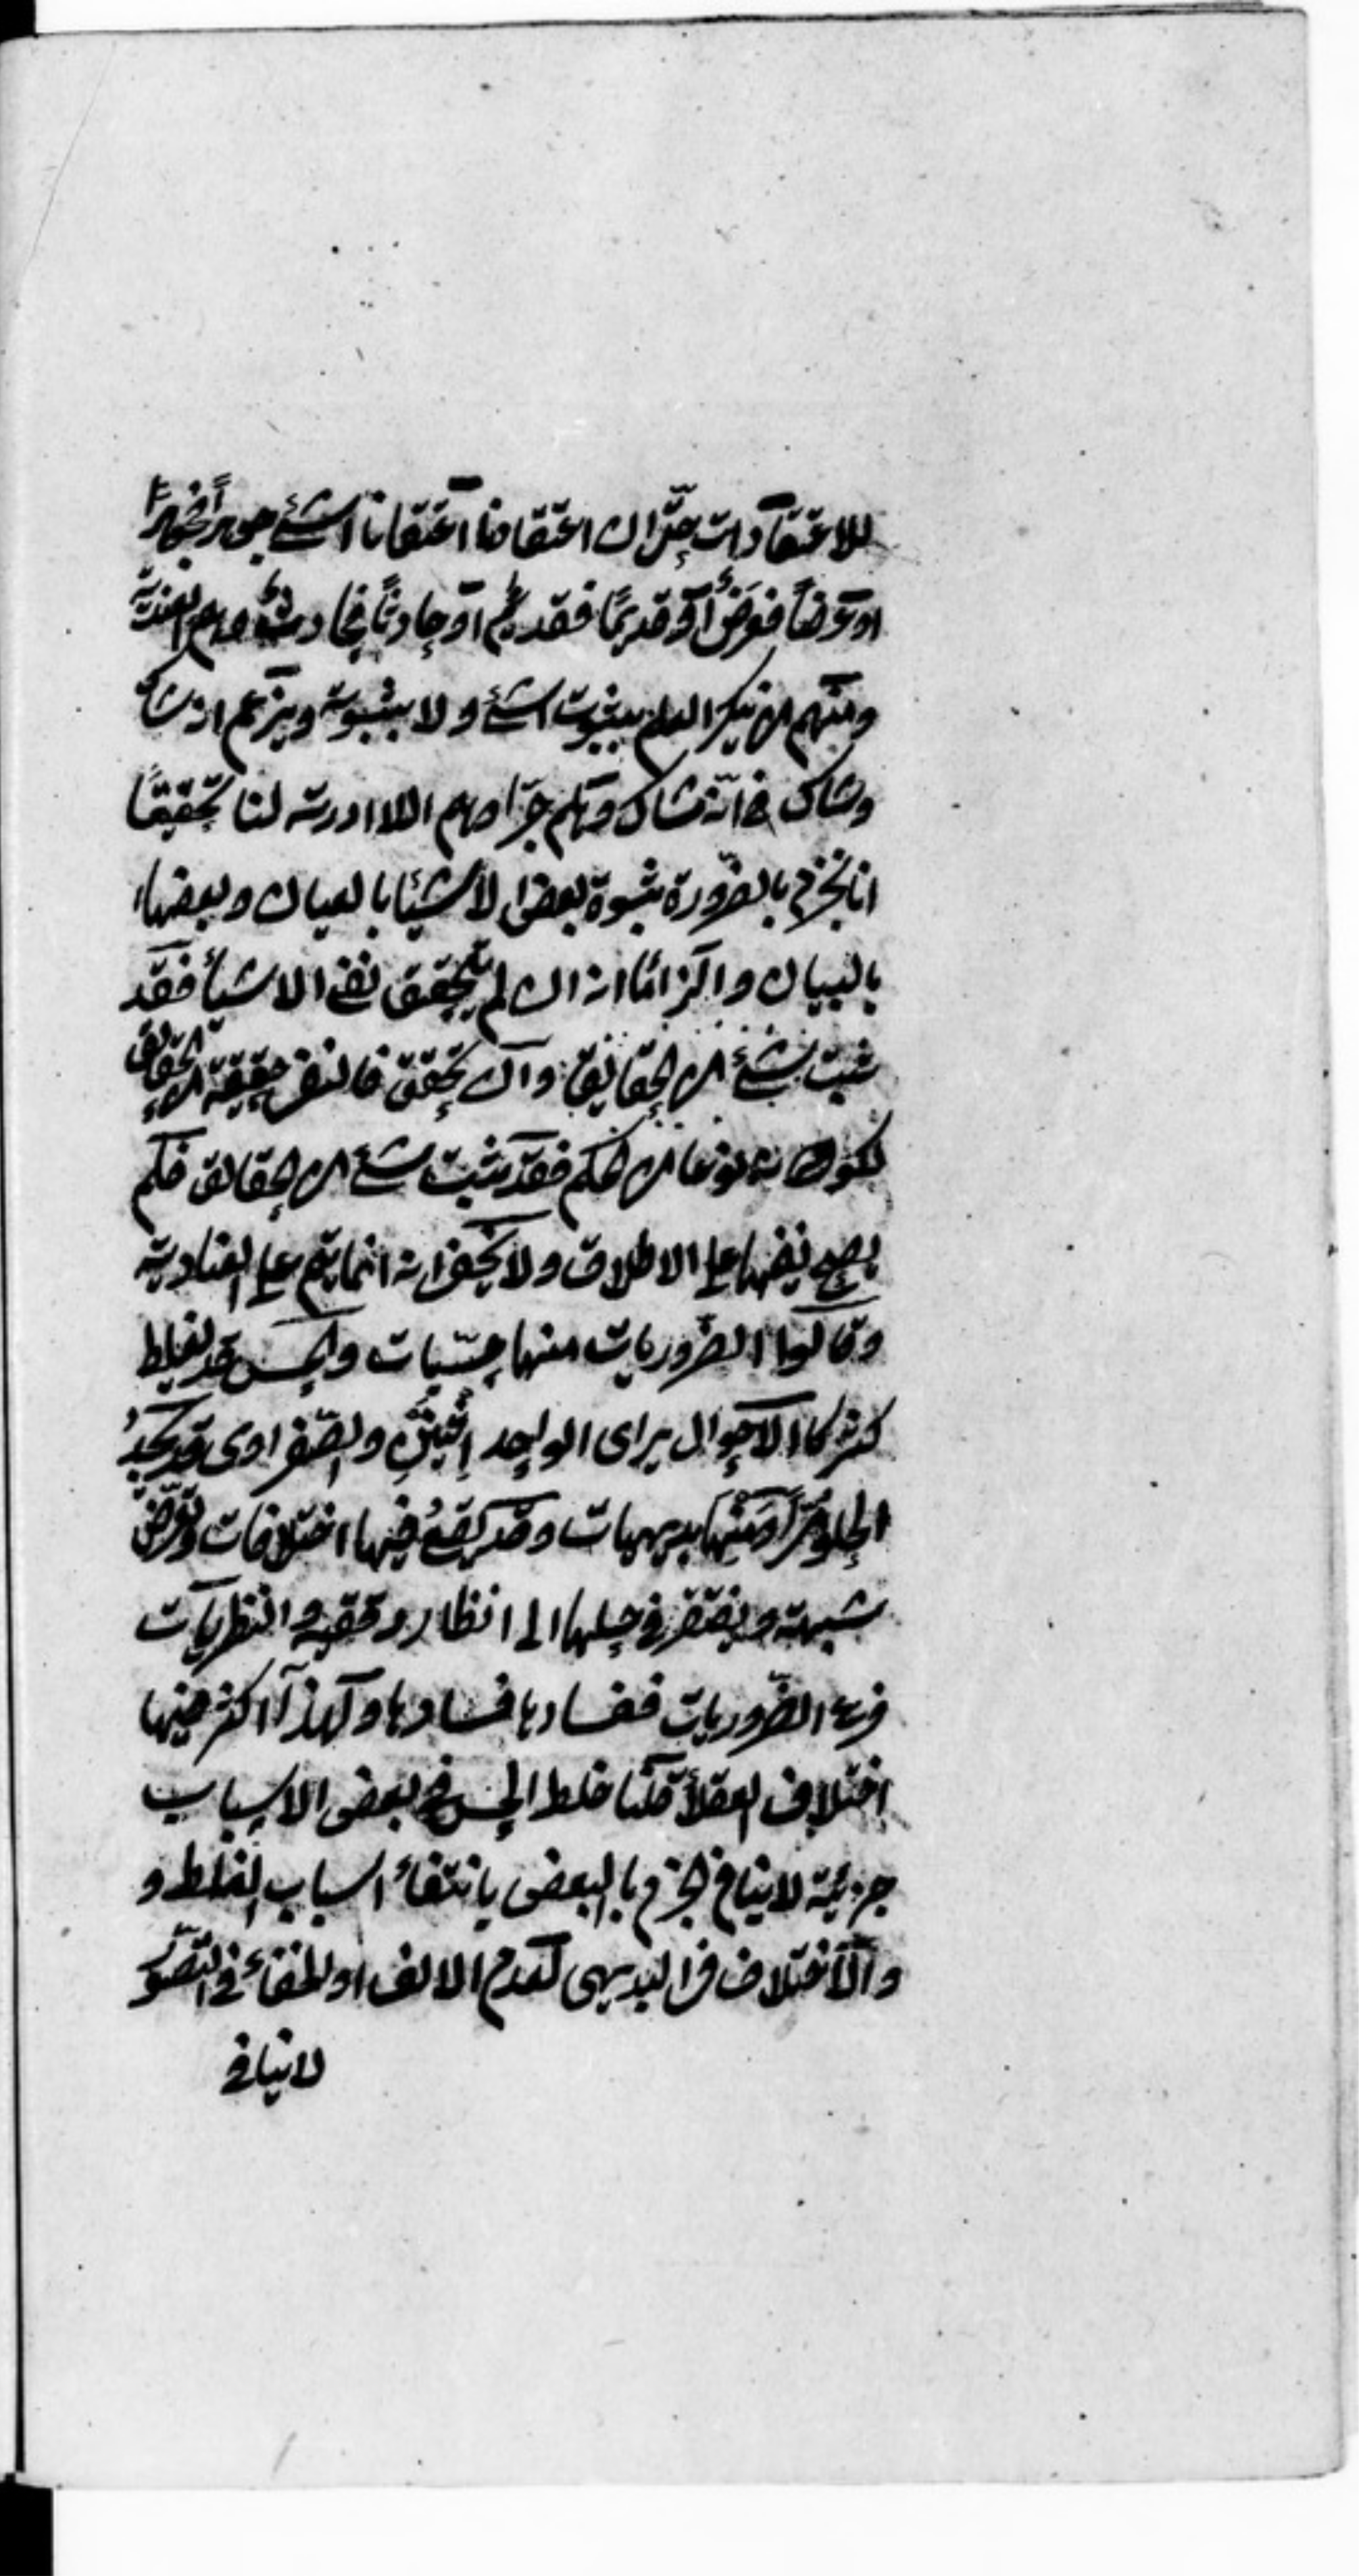 للاعتقادات حتى ان اعتقدنا اعتقانا الشئ جوهراً فجوهر
او عرضاً فعرض أو قديمًا فقديم او حادثاً فحادث وهم العندية
ومنهم من ينكر العلم بثبوت الشئ ولا بثبوته ويزعم انه شاك
وشاك في انه شاك وهلم جرّا وهم اللاادرية لنا تحقيقًا
انا نجزم بالضرورة بثبوة بعض الأشيئا بالعيان وبعضها
بالبيان والزامًا انه ان لم يتحقق نفى الاشيأ فقد
ثبت شئ من الحقايق وان تحقق فالنفى حقيقة من الحقائق
لكونه نوعا من الحكم فقد ثبت شئ من الحقائق فلم
يصح نفيها على الاطلاق ولا يخفى انه انما يتم على العنادية
وقالوا الضروريات منها حسّيات والحس قد يغلط
كثيركا الاحوال يراى الواحد اثنين والصفراوى قد يجدُ
الحلو مرًّا ومنها بديهيات وقد يقعُ فيها اختلافات وتعرض
شبهة ويفتقر في حلها الى انظار دقيقة والنظريات
فرع الضروريات ففسادها فسادها ولهذا اكثر فيها
اختلاف العقلأ قلنا غلط الحس في بعض الاسباب
جزئية لا ينافي الجزم بالبعض بانتفأ اسباب الغلط و
والأختلاف في البديهى لعدم الالف او لخفأ في التصور
لا ينافي